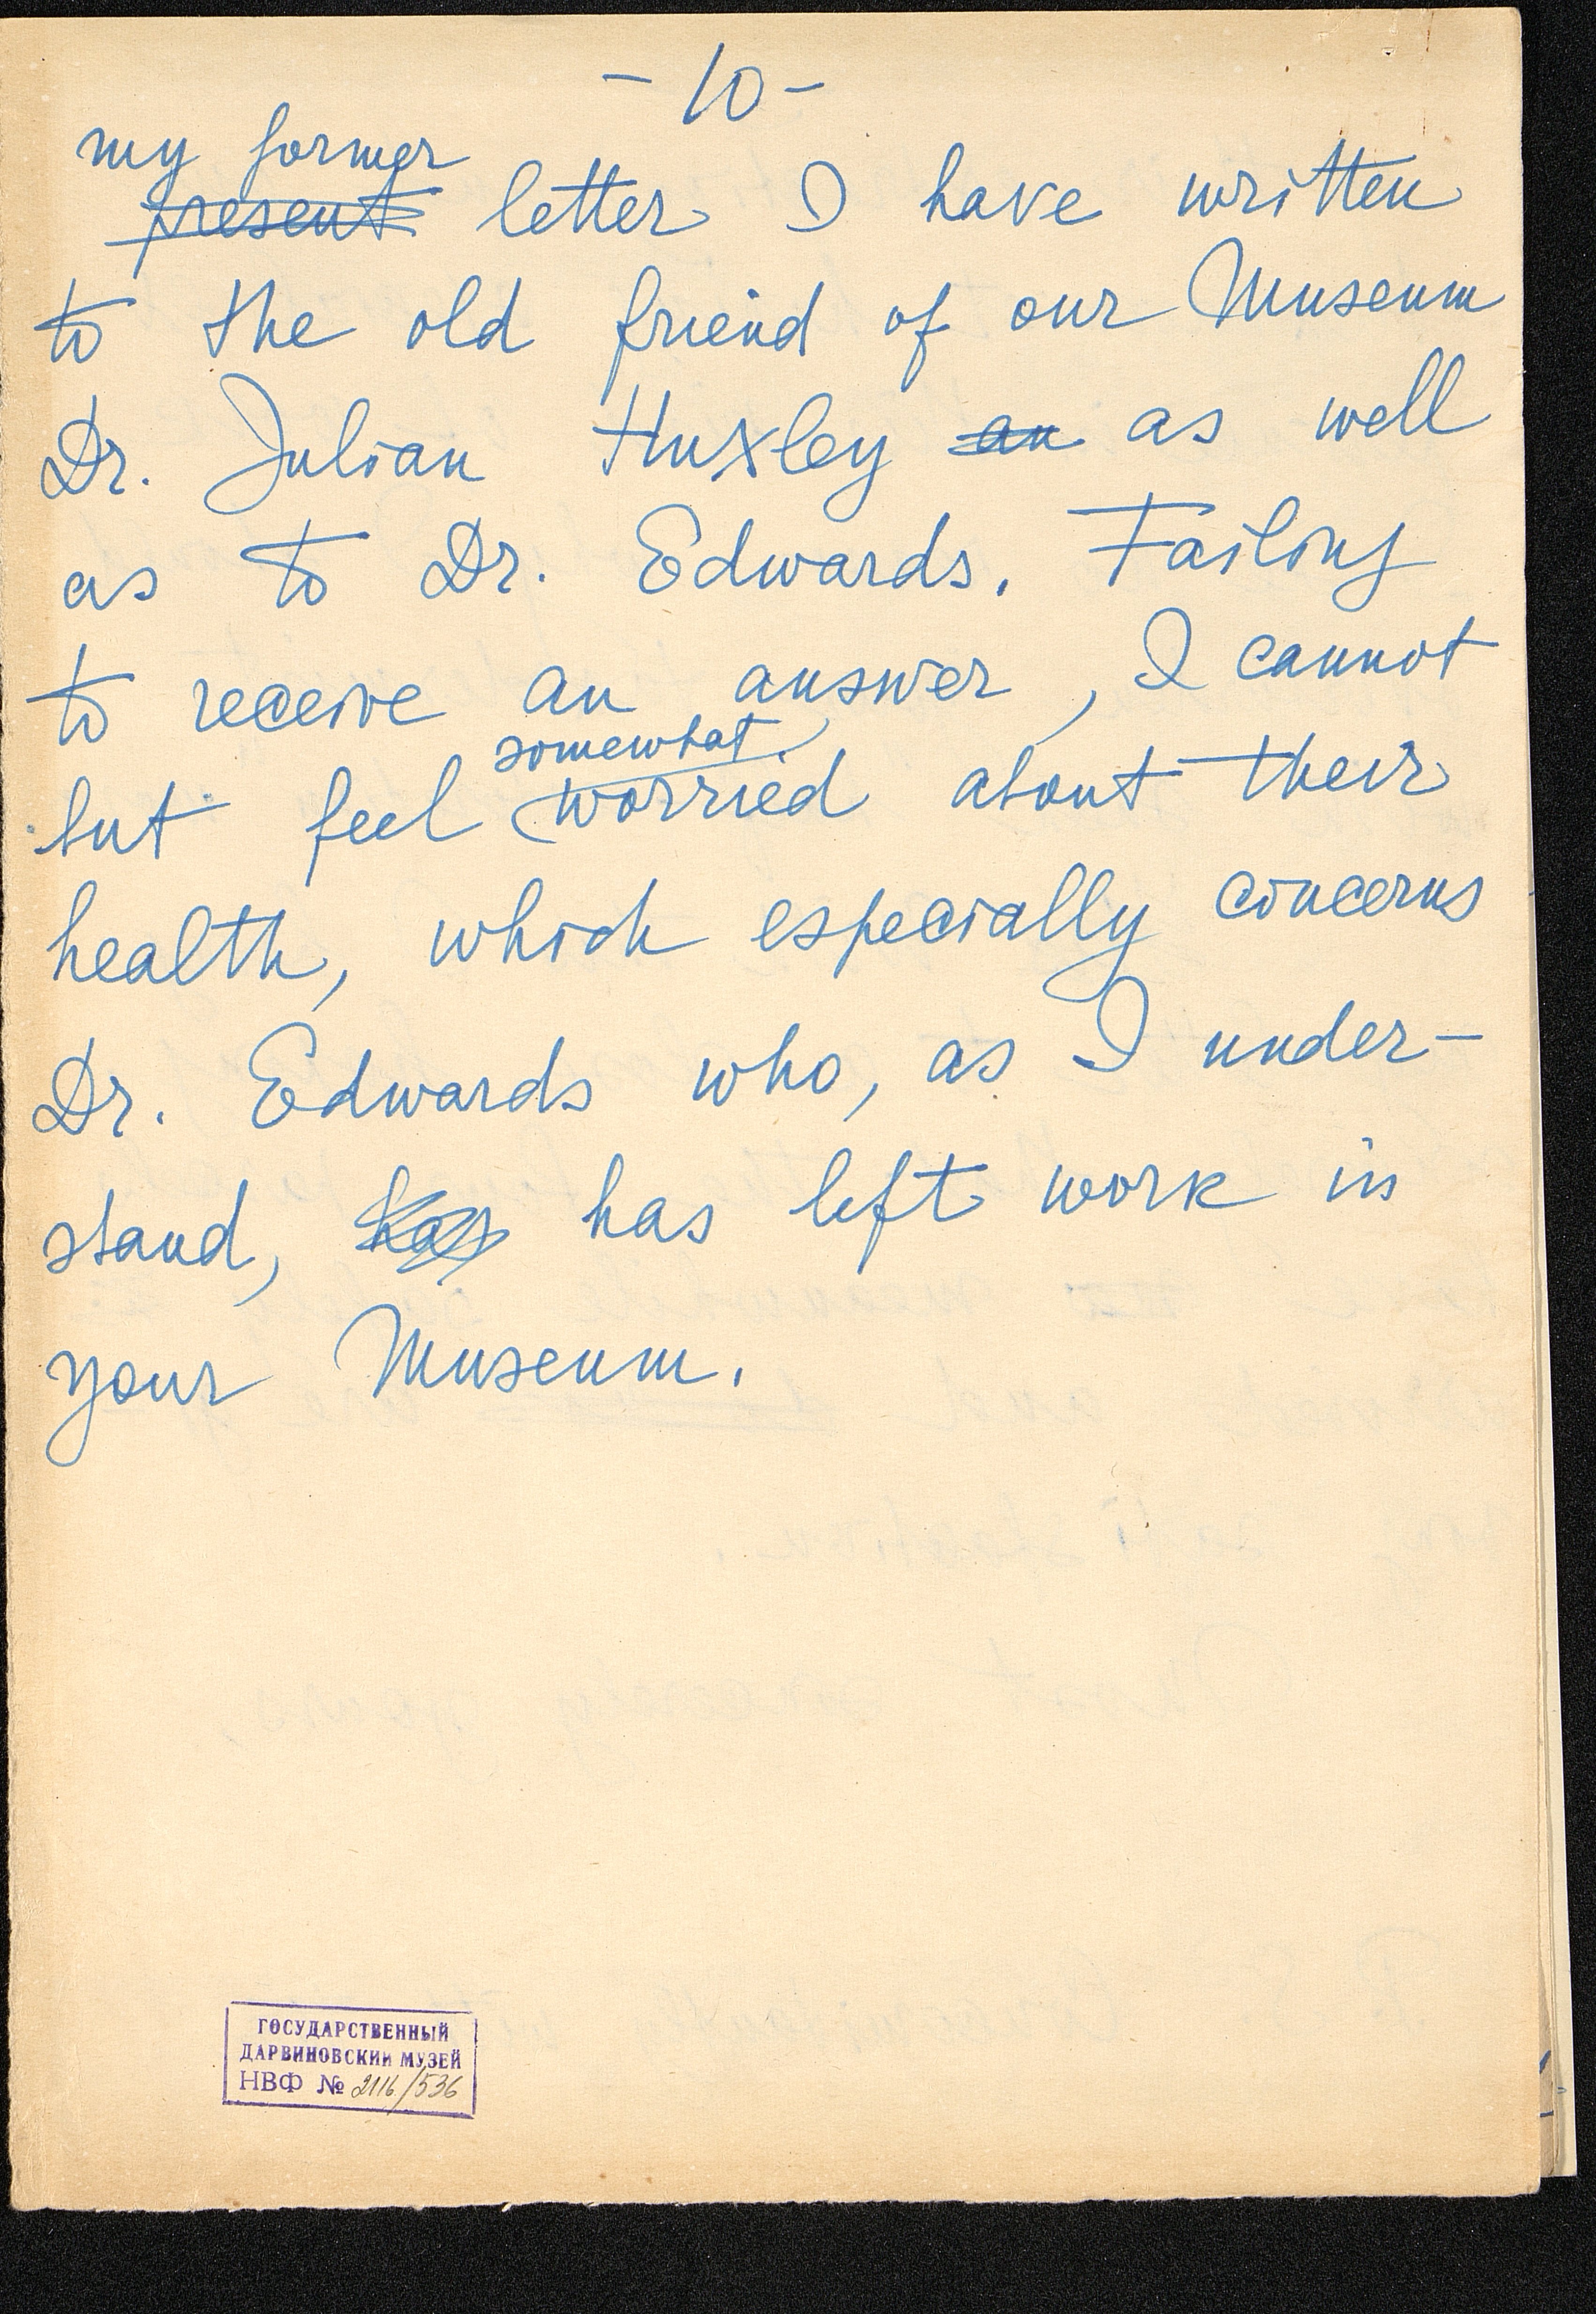 - 10 -
my former
present letter I have written
to the old friend of our Museum
Dr. Julian Huxley an as well
as to Dr. Edwards. Failing
to receive an answer, I cannot
somewhat
but feel worried about their
health, which especially concerns
Dr. Edwards who, as I under-
stand, has has left work in
your Museum.
ГОСУДАРСТВЕННЫЙ
ДАРВИНОВСКИЙ МУЗЕЙ
НВФ № 2116/536